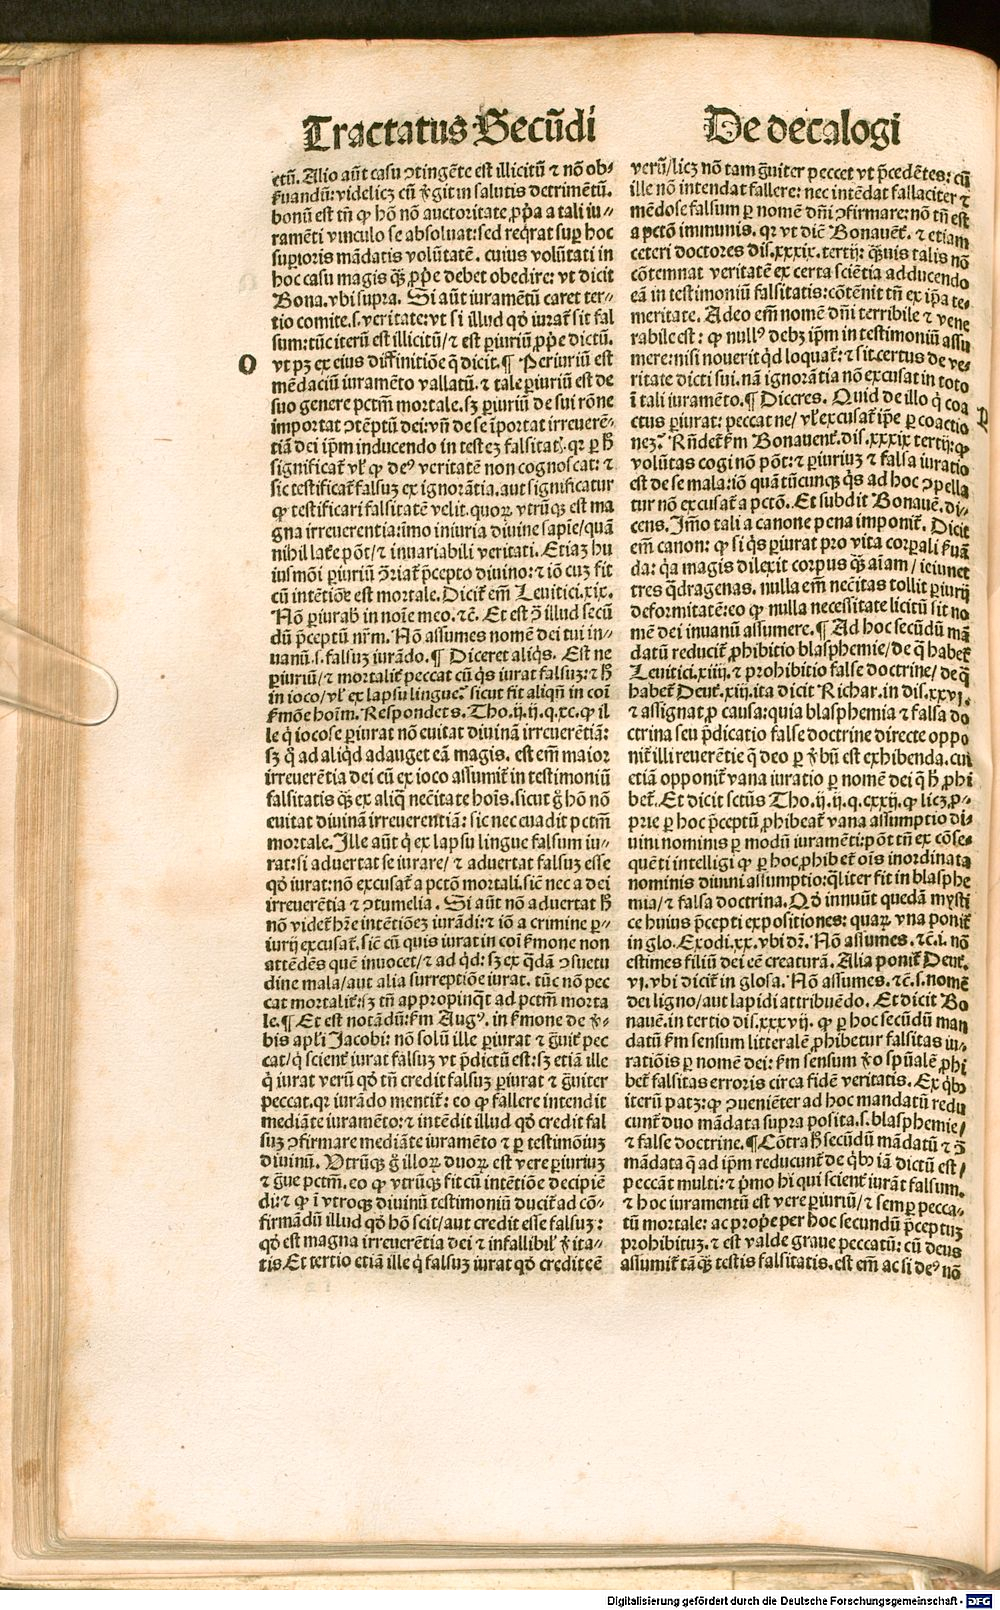 Tractatus Secũdi
De decalogi
ctũ. Alio aũt casu ↄtingẽte est illicitũ ⁊ nõ ob⸗
ẜuandũ: videlicꝫ cũ ꝟgit in salutis detrimẽtũ.
bonũ est tñ ꝙ hõ nõ auctoritate ꝓp̃a a tali iu⸗
ramẽti vinculo se absoluat: sed reqͥrat suꝑ hoc
suꝑioris mãdatis volũtatẽ. cuius volũtati in
hoc casu magis qͣꝫ ꝓp̃e debet obedire: vt dicit
Bona. vbi supra. Si aũt iuramẽtũ caret ter⸗
tio comite .s. veritate: vt si illud qđ iurat̃ sit fal
sum: tũc iterũ est illicitũ/ ⁊ est ꝑiuriũ ꝓp̃e dictũ.
O
vt pꝫ ex eius diffinitiõe q̃ dicit. ¶ Periuriũ est
mẽdaciũ iuramẽto vallatũ. ⁊ tale ꝑiuriũ est de
suo genere pctm̃ mortale. sꝫ ꝑiuriũ de sui rõne
importat ↄtẽptũ dei: vñ de se ĩportat irreuerẽ⸗
tiã dei ip̃m inducendo in testeꝫ falsitatꝭ. qꝛ ꝑ ħ
significat̃ vł ꝙ deꝰ veritatẽ non cognoscat: ⁊
sic testificat̃ falsuꝫ ex ignorãtia. aut significatur
ꝙ testificari falsitatẽ velit. quoꝝ vtrũqꝫ est ma
gna irreuerentia: ĩmo iniuria diuine sapiẽ/ quã
nihil latere põt/ ⁊ inuariabili veritati. Etiaꝫ hu
iusmõi ꝑiuriũ ↄ̃riat̃ p̃cepto diuino: ⁊ iõ cuꝫ fit
cũ intẽtiõe est mortale. Dicit̃ em̃ Leuitici .xix.
Nõ ꝑiurabꝭ in noĩe meo. ⁊c̃. Et est ↄ̃ illud secũ
dũ p̃ceptũ nr̃m. Nõ assumes nomẽ dei tui in⸗
uanũ .s. falsuꝫ iurãdo. ¶ Diceret aliqͥs. Est ne
ꝑiuriũ/ ⁊ mortalit̃ peccat cũ qͥs iurat falsuꝫ: ⁊ ħ
in ioco/ vł ex lapsu lingue? sicut fit aliqñ in coĩ
ẜmõe hoĩm. Respondet s. Tho. ij. ij. q. xc. ꝙ il
le qͥ iocose ꝑiurat nõ euitat diuinã irreuerẽtiã:
sꝫ qͦ ad aliqͥd adauget eã magis. est em̃ maior
irreuerẽtia dei cũ ex ioco assumit̃ in testimoniũ
falsitatis qͣꝫ ex aliq̃ necĩtate hoĩs. sicut g̊ hõ nõ
euitat diuinã irreuerentiã: sic nec euadit pctm̃
mortale. Ille aũt qͥ ex lapsu lingue falsum iu⸗
rat: si aduertat se iurare/ ⁊ aduertat falsuꝫ esse
qđ iurat: nõ excusat̃ a pctõ mortali. sic̃ nec a dei
irreuerẽtia ⁊ ↄtumelia. Si aũt nõ aduertat ħ
nõ videt̃ hr̃e intẽtiõeꝫ iurãdi: ⁊ iõ a crimine ꝑ⸗
iurij excusat̃. sic̃ cũ quis iurat in coĩ ẜmone non
attẽdẽs quẽ inuocet/ ⁊ ad qͥd: sꝫ ex qͣdã ↄsuetu
dine mala/ aut alia surreptiõe iurat. tũc nõ pec
cat mortalit̃: sꝫ tñ appropinqͣt ad pctm̃ morta
le. ¶ Et est notãdũ: ẜm Augꝰ. in ẜmone de ꝟ⸗
bis apłi Jacobi: nõ solũ ille ꝑiurat ⁊ g̃uit̃ pec
cat/ qͥ scient̃ iurat falsuꝫ vt p̃dictũ est: sꝫ etiã ille
qͥ iurat verũ qđ tñ credit falsuꝫ ꝑiurat ⁊ g̃uiter
peccat. qꝛ iurãdo mentit̃: eo ꝙ fallere intendit
mediãte iuramẽto: ⁊ intẽdit illud qđ credit fal
suꝫ ↄfirmare mediãte iuramẽto ⁊ ꝑ testimõiuꝫ
diuinũ. Vtrũqꝫ g̊ illoꝝ duoꝝ est vere ꝑiuriuꝫ
⁊ g̃ue pctm̃. eo ꝙ vtrũqꝫ fit cũ intẽtiõe decipiẽ
di: ⁊ ꝙ ĩ vtroqꝫ diuinũ testimoniũ ducit̃ ad cõ⸗
firmãdũ illud qđ hõ scit/ aut credit esse falsuꝫ:
qđ est magna irreuerẽtia dei ⁊ infallibilꝭ ꝟita⸗
tis. Et tertio etiã ille qͥ falsuꝫ iurat qđ credit eẽ
verũ/ licꝫ nõ tam g̃uiter peccet vt p̃cedẽtes: cũ
ille nõ intendat fallere: nec intẽdat fallaciter ⁊
mẽdose falsum ꝑ nomẽ dñi ↄfirmare: nõ tñ est
a pctõ immunis. qꝛ vt diẽ Bonauẽt̃. ⁊ etiam
ceteri doctores dis. xxxix. tertij: qͣuis talis nõ
cõtemnat veritatẽ ex certa sciẽtia adducendo
eã in testimoniũ falsitatis: cõtẽnit tñ ex ip̃a te⸗
meritate. Adeo em̃ nomẽ dñi terribile ⁊ vene
rabile est: ꝙ nullꝰ debꝫ ip̃m in testimoniũ assu
mere: nisi nouerit qͥd loquat̃: ⁊ sit certus de ve⸗
ritate dicti sui. nã ignorãtia nõ excusat in toto
ĩ tali iuramẽto. ¶ Diceres. Quid de illo qͥ coa
P
ctus ꝑiurat: peccat ne/ vł excusat̃ ip̃e ꝑ coactio
neꝫ? Rñdet̃ ẜm Bonauent̃. dis. xxxix tertij: ꝙ
volũtas cogi nõ põt: ⁊ ꝑiuriuꝫ ⁊ falsa iuratio
est de se mala: iõ quãtũcunqꝫ qͥs ad hoc ↄpella
tur nõ excusat̃ a pctõ. Et subdit Bonauẽ. di⸗
cens. Jm̃o tali a canone pena imponit̃. Dicit
em̃ canon: ꝙ si qͥs ꝑiurat pro vita corꝑali ẜuã
da: qͥa magis dilexit corpus qͣꝫ aĩam/ ieiunet
tres qͣdragenas. nulla em̃ necĩtas tollit ꝑiurij
deformitatẽ: eo ꝙ nulla necessitate licitũ sit no
mẽ dei inuanũ assumere. ¶ Ad hoc secũdũ mã
datũ reducit̃ ꝓhibitio blasphemie/ de q̃ habet̃
Leuitici. xiiij. ⁊ prohibitio false doctrine/ de q̃
habet̃ Deut̃. xiij. ita dicit Richar. in dis. xxvi.
⁊ assignat ꝓ causa: quia blasphemia ⁊ falsa do
ctrina seu p̃dicatio false doctrine directe oppo
nit̃ illi reuerẽtie q̃ deo ꝑ ꝟbũ est exhibenda. cui
etiã opponit̃ vana iuratio ꝑ nomẽ dei q̃ ħ ꝓhi
bet̃. Et dicit sctũs Tho. ij. ij. q. cxxij. ꝙ licꝫ ꝓ⸗
prie ꝑ hoc p̃ceptũ ꝓhibeat̃ vana assumptio di⸗
uini nominis ꝑ modũ iuramẽti: põt tñ ex cõse⸗
quẽti intelligi ꝙ ꝑ hoc ꝓhibet̃ oĩs inordinata
nominis diuini assumptio: qͣliter fit in blasphe
mia/ ⁊ falsa doctrina. Qđ innuũt quedã mysti
ce huius p̃cepti expositiones: quaꝝ vna ponit̃
in glo. Exodi. xx. vbi dr̃. Nõ assumes. ⁊c̃. i. nõ
estimes filiũ dei eẽ creaturã. Alia ponit̃ Deut̃.
vi. vbi dicit̃ in glosa. Nõ assumes. ⁊c̃. s. nomẽ
dei ligno/ aut lapidi attribuẽdo. Et dicit Bo
nauẽ. in tertio dis. xxxvij. ꝙ ꝑ hoc secũdũ man
datũ ẜm sensum litteralẽ ꝓhibetur falsitas iu⸗
ratiõis ꝑ nomẽ dei: ẜm sensum ꝟo spũalẽ ꝓhi
bet̃ falsitas erroris circa fidẽ veritatis. Ex qͥbꝰ
iterũ patꝫ: ꝙ ↄueniẽter ad hoc mandatũ redu
cunt̃ duo mãdata supra posita. s. blasphemie/
⁊ false doctrine. ¶ Cõtra ħ secũdũ mãdatũ ⁊ ↄ̃
mãdata q̃ ad ip̃m reducunt̃ de qͥbꝰ iã dictũ est/
peccãt multi: ⁊ pͥmo hi qui scient̃ iurãt falsum.
⁊ hoc iuramentũ est vere ꝑiuriũ/ ⁊ semꝑ pecca⸗
tũ mortale: ac prop̃e per hoc secundũ p̃ceptuꝫ
prohibituꝫ. ⁊ est valde graue peccatũ: cũ deus
assumit̃ tãqͣꝫ testis falsitatis. est em̃ ac si deꝰ nõ
Digitalisierung gefördert durch die Deutsche Forschungsgemeinschaft - DFG